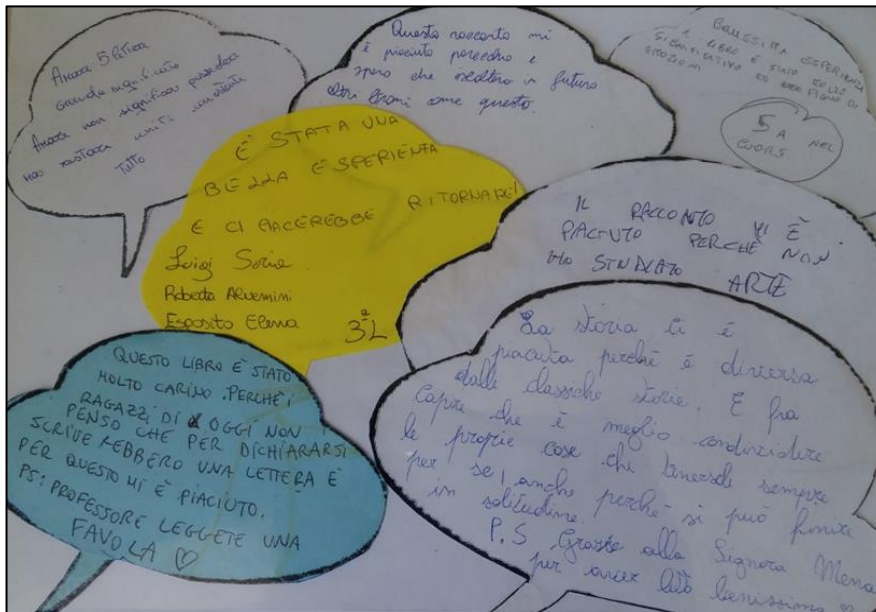 Amare 5 lettere
Grande significato
Amare non significa possedere
ma restare uniti nonostante
tutto
Questo racconto mi
è piaciuto parecchio e
spero che ascolterò in futuro
altri brani come questo.
BELLISSIMA ESPERIENZA
IL LIBRO È STATO MOLTO
SIGNIFICATIVO ED
EMOZIONI
5A NEL
CUORE
È STATA UNA
BELLA ESPERIENZA
E CI PIACEREBBE RITORNARE!
Luigi Soria
Roberta Arvemini
Esposito Elena 3ªL
IL RACCONTO MI È
PIACIUTO PERCHÈ NON
HO STUDIATO
ARTE
QUESTO LIBRO È STATO
MOLTO CARINO. PERCHÈ I
RAGAZZI DI OGGI NON
PENSO CHE PER DICHIARARSI
SCRIVEREBBERO UNA LETTERA E
PER QUESTO MI È PIACIUTO.
PS: PROFESSORE LEGGETE UNA
FAVOLA ♡
La storia ci è
piaciuta perché è diversa
dalle classiche storie. E fa
capire che è meglio condividere
le proprie cose che tenersele sempre
per se, anche perché si può finire
in solitudine.
P.S Grazie alla Signora Mena
per aver letto benissimo